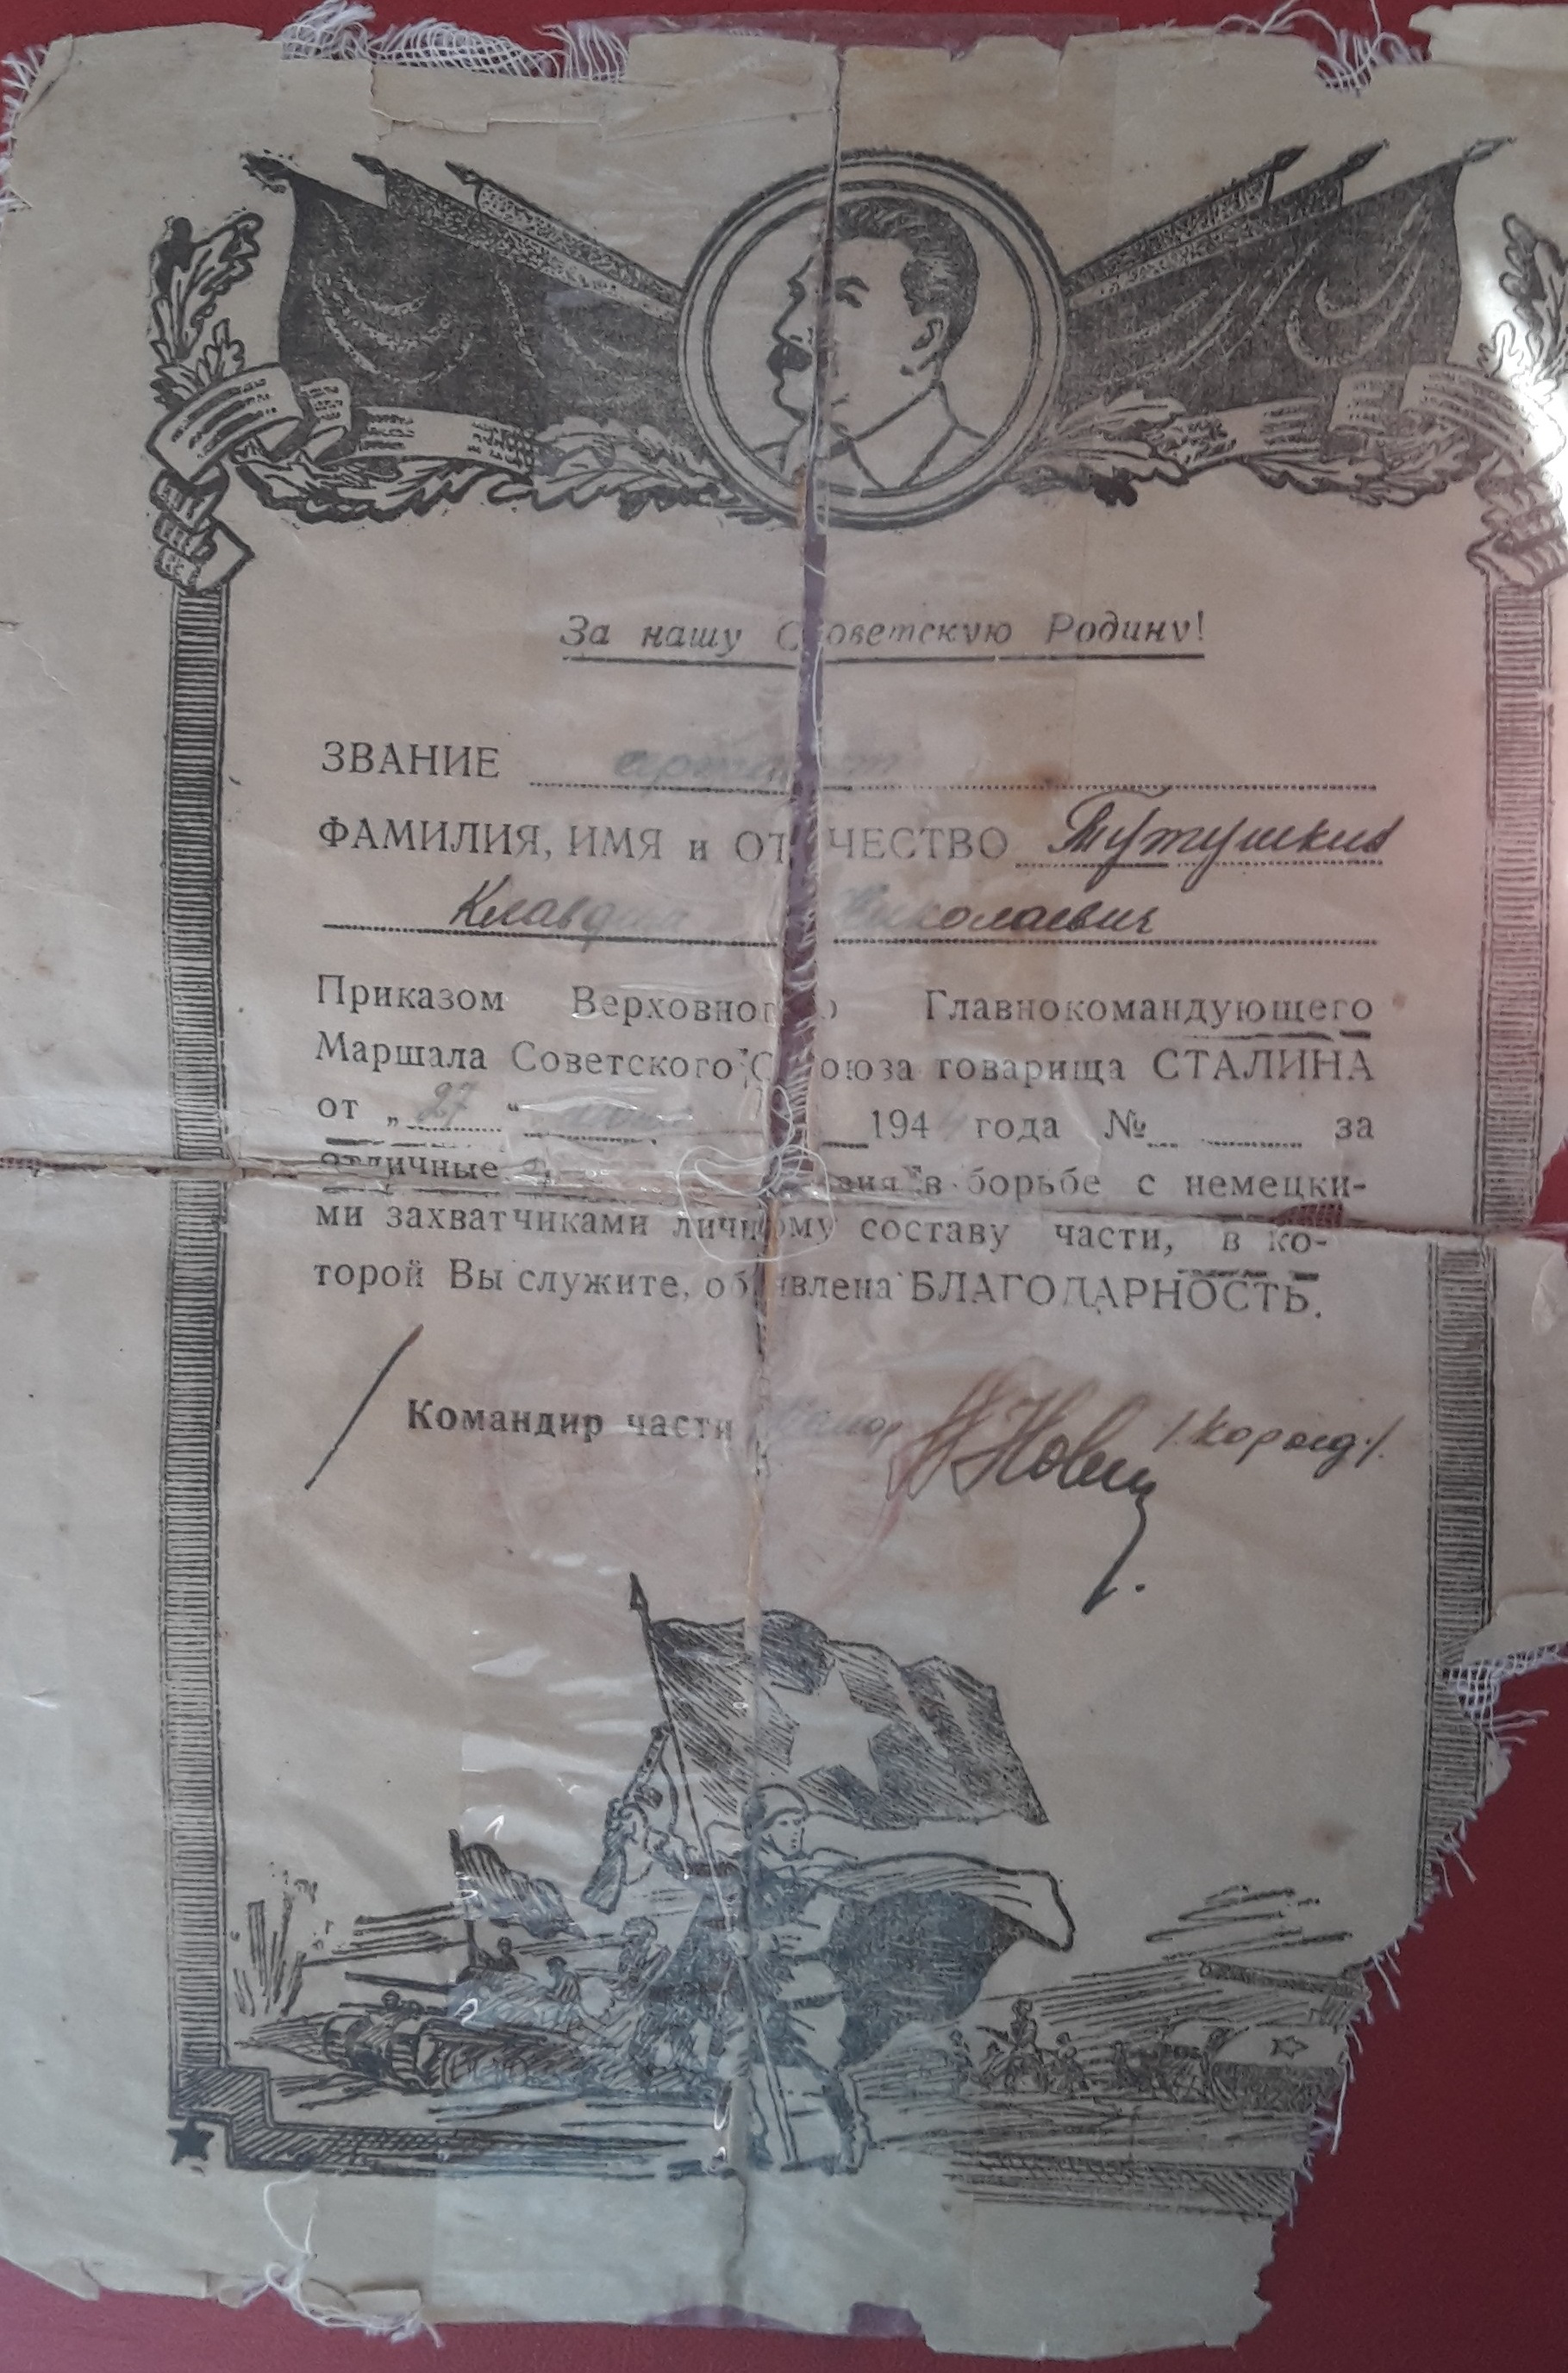 За нашу Советскую Родину!
ЗВАНИЕ
ФАМИЛИЯ, ИМЯ и ОТЧЕСТВО Тутушкин
Николаевич
Приказом Верховного Главнокомандующего
Маршала Советского Союза товарища СТАЛИНА
от „27“ 194 года № за
отличные в борьбе с немецки-
ми захватчиками личному составу части, в ко-
торой Вы служите, объявлена БЛАГОДАРНОСТЬ.
Командир части